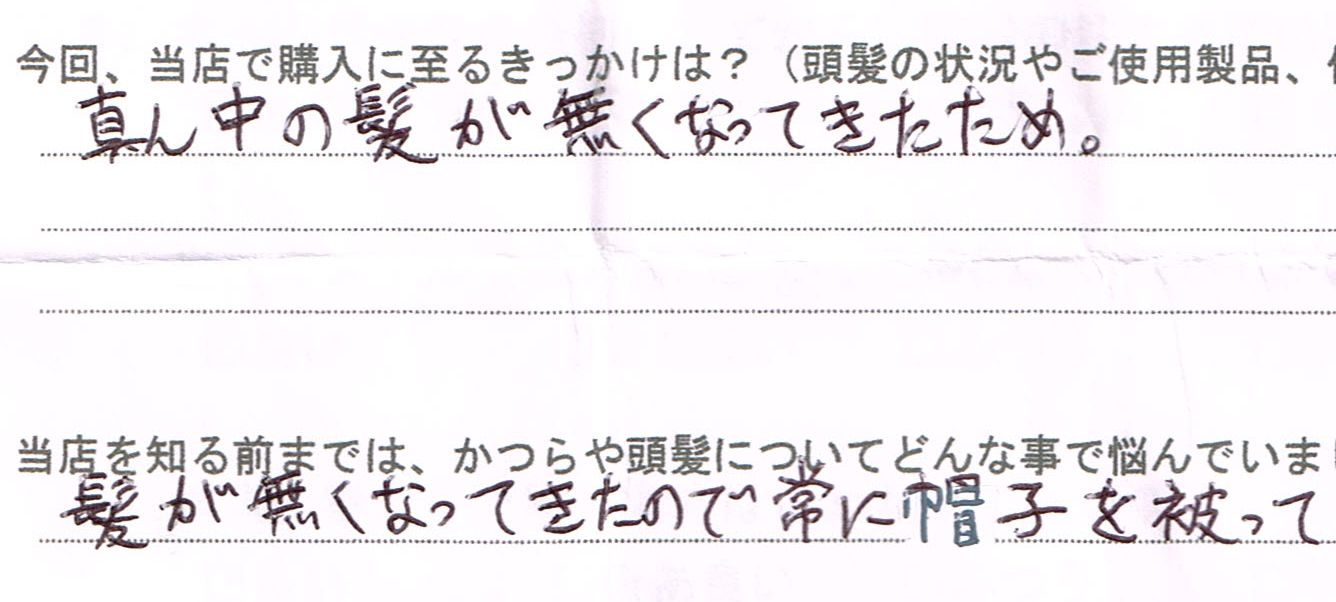 今回、当店で購入に至るきっかけは？（頭髪の状況やご使用製品、
真ん中の髪が無くなってきたため。
当店を知る前までは、かつらや頭髪についてどんな事で悩んでいま
髪が無くなってきたので常に帽子を被って